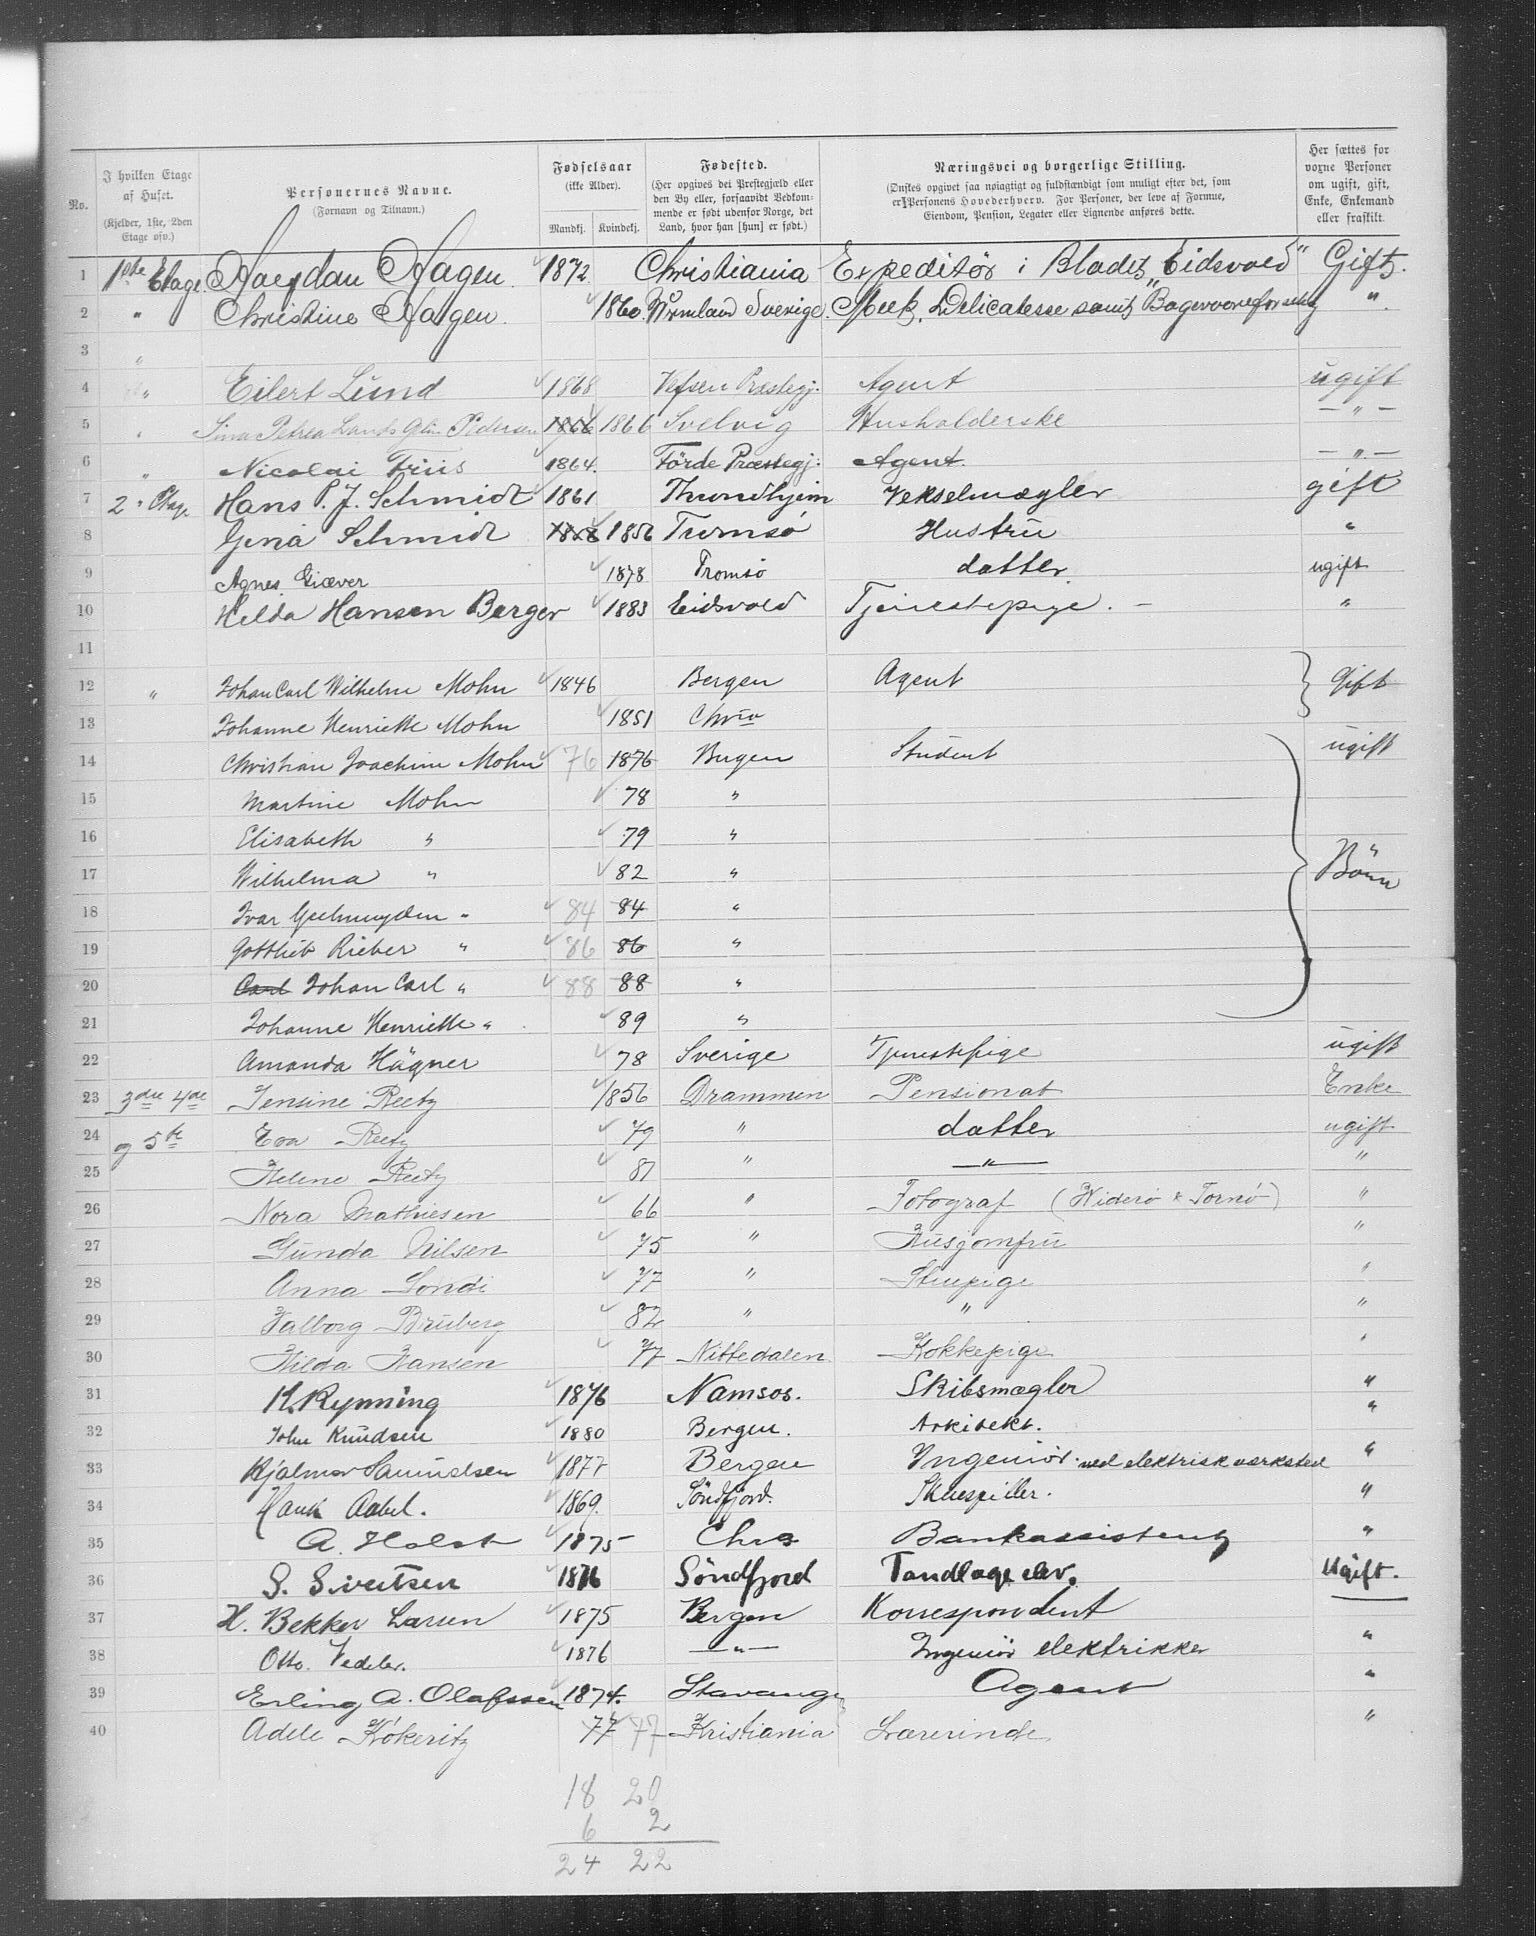 No.
I hvilken Etage af Huset.
(Kjelder, 1ste, 2den Etage osv.)
Personernes Navne.
(Fornavn og Tilnavn.)
Fødselsaar
(ikke Alder).
Mandkj. Kvindekj.
Fødested.
(Her opgives det Prestegjæld eller den By eller, forsaavidt Vedkommende er født udenfor Norge, det Land, hvor han [hun] er født.)
Næringsvei og borgerlige Stilling.
(Ønskes opgivet saa nøiagtigt og fuldstændigt som muligt efter det, som er Personens Hovederhverv. For Personer, der leve af Formue, Eiendom, Pension, Legater eller Lignende anføres dette.
Her sættes for voxne Personer om ugift, gift, Enke, Enkemand eller fraskilt.
1 1ste Etage Hagen 1872 Christiania Expeditör i Bladet „Eidsvold" Gift.
2 " Christine Hagen 1860 Sverige. Delicatesse samt "
3 "
4 " Eilert Lund 1868 Vefsen Præstegj. Agent ugift
5 " Pedersen 1866 1866 Svelvig Husholderske — " —
6 " Nicolai Friis 1864. Förde Præstegj: Agent. — " —
7 2 " Etage Hans P. J. Schmidt 1861 Throndhjem Vekselmægler gift
8 Gina Schmidt 1858 1856 Tromsø Hustru "
9 Agnes Giæver 1878 Tromsø datter ugift
10 Helda Hansen Berger 1883 Eidsvold Tjenestepige. — "
11
12 " Johan Carl Wilhelm Mohn 1846 Bergen Agent Gift
13 Johanne Henriette Mohn 1851 Chria
14 Christian Joachim Mohn 76 1876 Bergen Student ugift
15 Martine Mohn 78 "
16 Elisabeth " 79 "
17 Wilhelma " 82 " Börn
18 Ivar Geelmuyden " 84 84 "
19 Gottlieb Rieber " 86 86 "
20 Carl Johan Carl " 88 88 "
21 Johanne Henriette " 89 "
22 Amanda Hägner 78 Sverige Tjenestepige ugift
23 3die 4de Jensine Reetz 1856 Drammen Pensionat Enke
24 og 5te Eva Reetz 79 " datter ugift
25 Helene Reetz 81 " — " — "
26 Nora Mathiesen 66 " Fotograf (Widerø & Tornø) "
27 Gunda Nilsen 75 " Husjomfru "
28 Anna 77 " Stuepige "
29 Valborg Bruberg 82 " " "
30 Hilda Hansen 77 Nittedalen Kokkepige "
31 K. Rynning 1876 Namsos. Skibsmægler "
32 John Knudsen 1880 Bergen. Arkitekt. "
33 Hjalmar Samuelsen 1877 Bergen Ingeniör ved elektrisk værksted "
34 Hauk Aabel. 1869. Söndfjord. Skuespiller. "
35 A. Holst 1875 Chra Bankassistent "
36 S. Sivertsen 1876 Söndfjord Tandlæge elev. Ugift.
37 H. Bekker Larsen 1875 Bergen Korrespondent
38 Otto Vedeler. 1876 — " — Ingeniör elektrikker "
39 Erling A. Olafssen 1874. Stavanger Agent "
40 Adele Kökeritz 77 77 Kristiania Lærerinde "
18 20
6 2
24 22